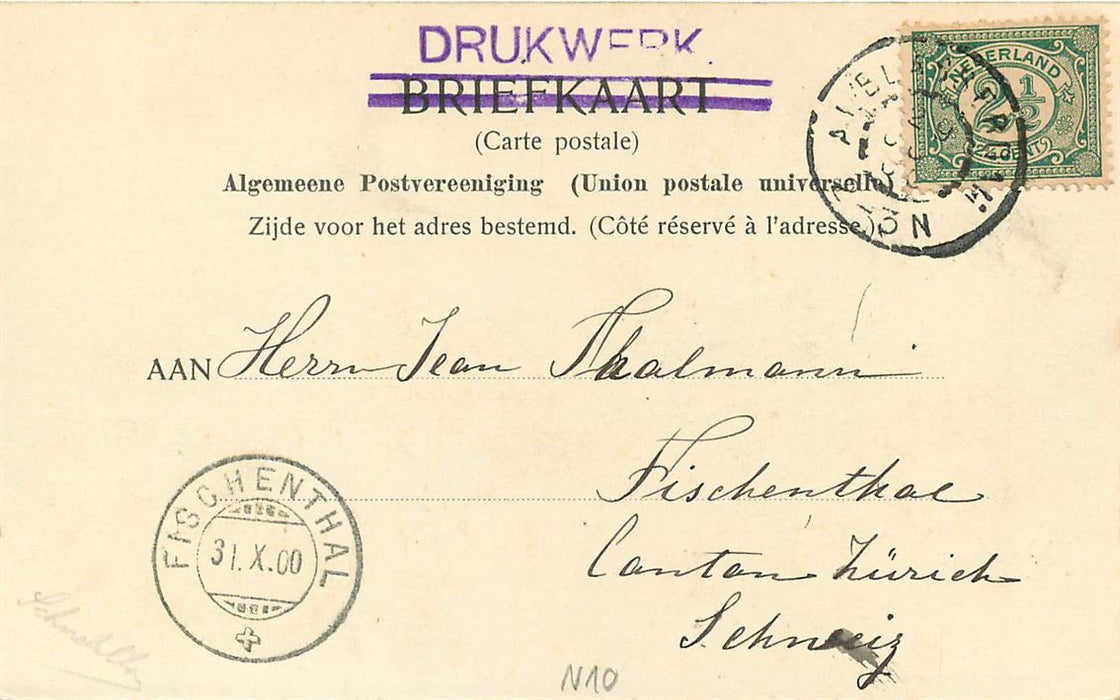 DRUKWERK
BRIEFKAART
(Carte postale)
Algemeene Postvereeniging (Union postale universelle)
Zijde voor het adres bestemd. (Côté réservé à l'adresse.)
NEDERLAND
2 1/2
CENT
AAN Herrn Jean Thalmann
Fischenthal
Canton Zürich
Schweiz
FISCHENTHAL
31.X.00
N10